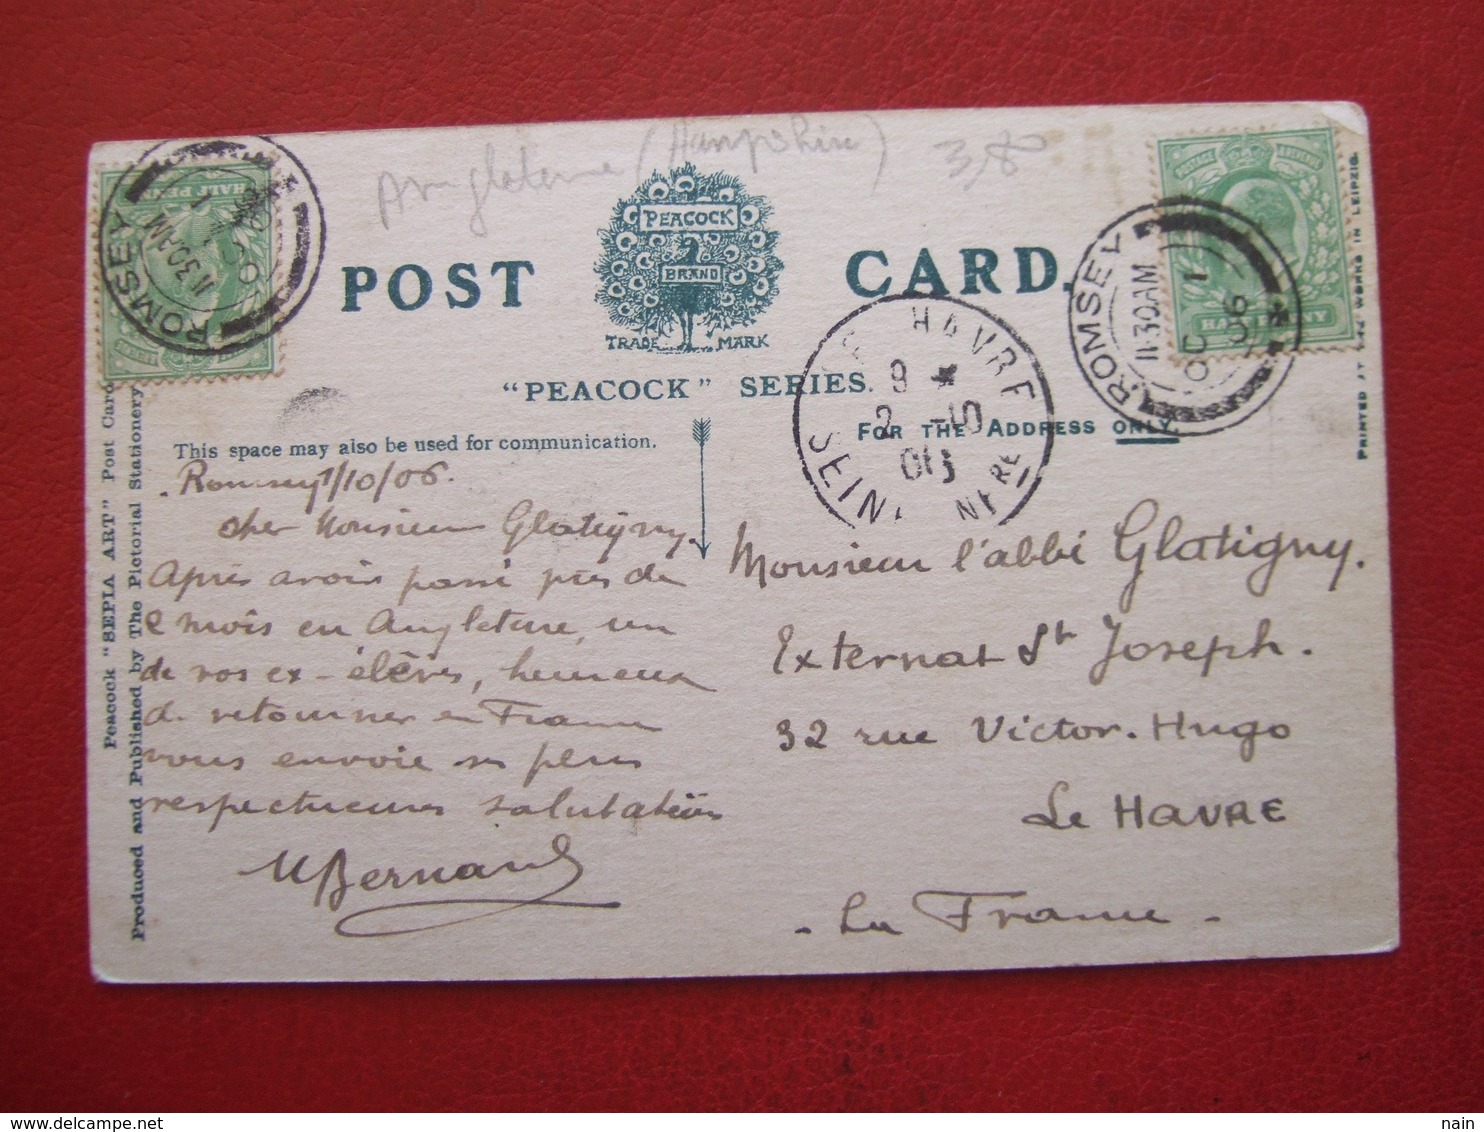 Angleterre (Hampshire) 3,8
HALF PENNY
ROMSEY
11.30AM
OC 1
06
POST CARD.
PEACOCK
BRAND
TRADE MARK
"PEACOCK" SERIES.
This space may also be used for communication.
FOR THE ADDRESS ONLY.
POSTAGE REVENUE
ROMSEY
11.30AM
OC 1
06
HAVRE
9 *
2 -
06
SEINE INFRE
Romsey 1/10/06.
cher Monsieur Glatigny.
Après avoir passé près de
2 mois en Angleterre, un
de vos ex-élèves, heureux
de retourner en France
vous envoie ses plus
respectueuses salutations
MBernard
Monsieur l'abbé Glatigny.
Externat St Joseph.
32 rue Victor-Hugo
Le HAVRE
- La France -
Peacock "SEPIA ART" Post Card
Produced and Published by The Pictorial Stationery
PRINTED AT WORKS IN LEIPZIG.
nain